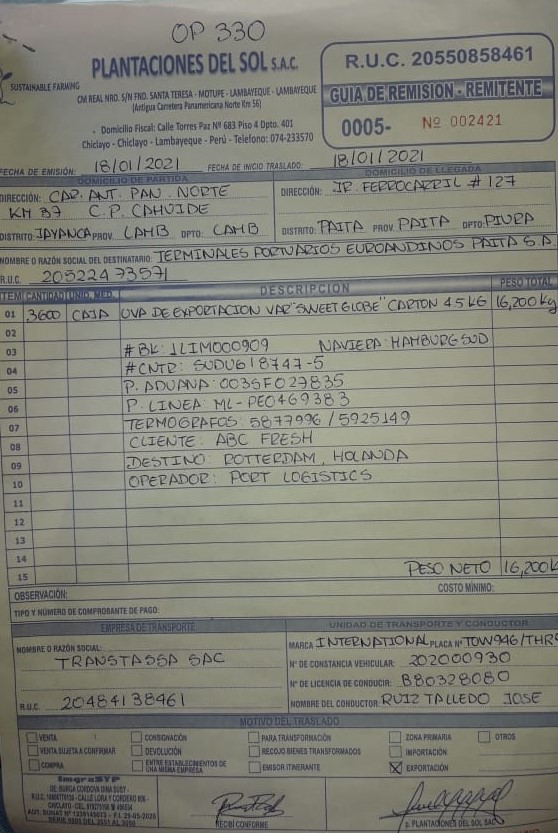 OP 330
SUSTAINABLE FARMING
PLANTACIONES DEL SOL S.A.C.
CM REAL NRO. S/N FND. SANTA TERESA - MOTUPE - LAMBAYEQUE - LAMBAYEQUE
(Antigua Carretera Panamericana Norte Km 56)
- Domicilio Fiscal: Calle Torres Paz Nº 683 Piso 4 Dpto. 401
Chiclayo - Chiclayo - Lambayeque - Perú - Telefono: 074-233570
R.U.C. 20550858461
GUIA DE REMISION - REMITENTE
0005- Nº 002421
FECHA DE EMISIÓN: 18/01/2021 FECHA DE INICIO TRASLADO: 18/01/2021
DOMICILIO DE PARTIDA
DIRECCIÓN: CAR. ANT. PAN. NORTE
KM 37 C.P. CAHUIDE
DISTRITO: JAYANCA PROV. LAMB DPTO: LAMB
DOMICILIO DE LLEGADA
DIRECCIÓN: JR. FERROCARRIL # 127
DISTRITO: PAITA PROV. PAITA DPTO: PIURA
NOMBRE O RAZÓN SOCIAL DEL DESTINATARIO: TERMINALES PORTUARIOS EUROANDINOS PAITA S.A
R.U.C. 20522473571
ITEM CANTIDAD UNID. MED. DESCRIPCION PESO TOTAL
01 3600 CAJA UVA DE EXPORTACION VAR "SWEET GLOBE" CARTON 4.5 KG 16,200 Kg
02
03 # BK: 1LIM000909 NAVIERA: HAMBURG SUD
04 # CNTR: SUDU618747-5
05 P. ADUANA: 003SF027835
06 P. LINEA: ML-PE0469383
07 TERMOGRAFOS: 5877996 / 5925149
08 CLIENTE: ABC FRESH
09 DESTINO: ROTTERDAM, HOLANDA
10 OPERADOR: PORT LOGISTICS
11
12
13
14
15 PESO NETO 16,200K
OBSERVACIÓN: COSTO MÍNIMO:
TIPO Y NÚMERO DE COMPROBANTE DE PAGO:
EMPRESA DE TRANSPORTE
NOMBRE O RAZÓN SOCIAL:
TRANSTASSA SAC
R.U.C. 20484138461
UNIDAD DE TRANSPORTE Y CONDUCTOR
MARCA INTERNATIONAL PLACA Nº TOW946/THR
Nº DE CONSTANCIA VEHICULAR: 202000930
Nº DE LICENCIA DE CONDUCIR: B80328080
NOMBRE DEL CONDUCTOR: RUIZ TALLEDO JOSE
MOTIVO DEL TRASLADO
VENTA CONSIGNACIÓN PARA TRANSFORMACIÓN ZONA PRIMARIA OTROS
VENTA SUJETA A CONFIRMAR DEVOLUCIÓN RECOJO BIENES TRANSFORMADOS IMPORTACIÓN
COMPRA ENTRE ESTABLECIMIENTOS DE UNA MISMA EMPRESA EMISOR ITINERANTE X EXPORTACIÓN
ImgraSYP
DE: BURGA CORDOVA DINA SUSY
RECIBÍ CONFORME
p. PLANTACIONES DEL SOL SAC